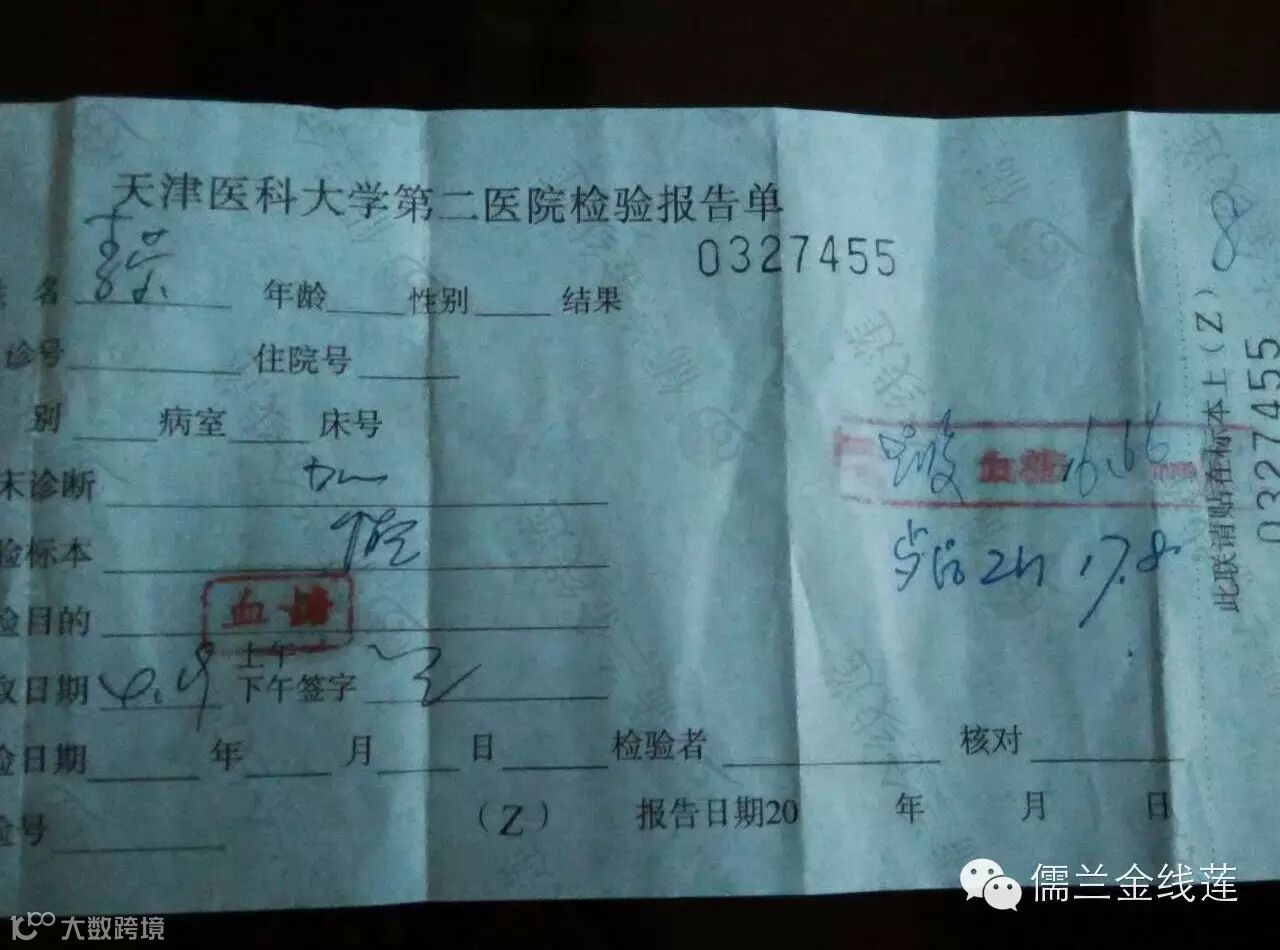 天津医科大学第二医院检验报告单
0327455
名 年龄 性别 结果
诊号 住院号
别 病室 床号
床诊断
验标本
血糖 16.66
2h 17.8
血糖
验目的
上午
取日期 下午签字
验日期 年 月 日 检验者 核对
验号 (Z) 报告日期20 年 月 日
此联请贴在标本上(Z) 8
0327455
儒兰金线莲
大数跨境